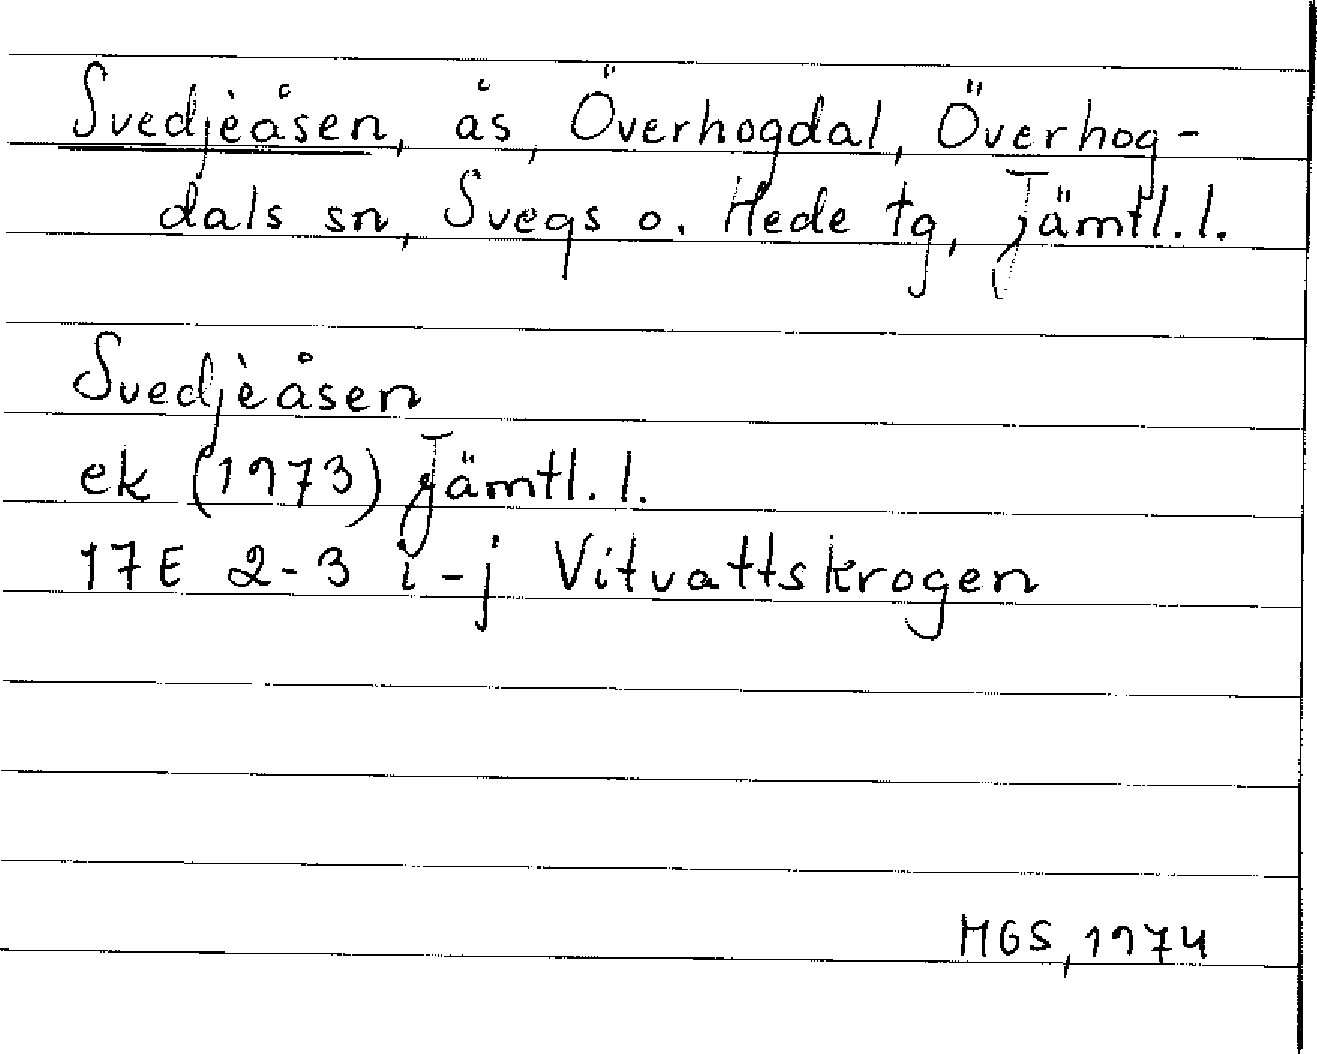 Svedjeåsen, ås, Överhogdal, Överhog-
dals sn, Svegs o. Hede tg, Jämtl. l.
Svedjeåsen
ek (1973) Jämtl. l.
17E 2-3 i-j Vitvattskrogen
MGS, 1974